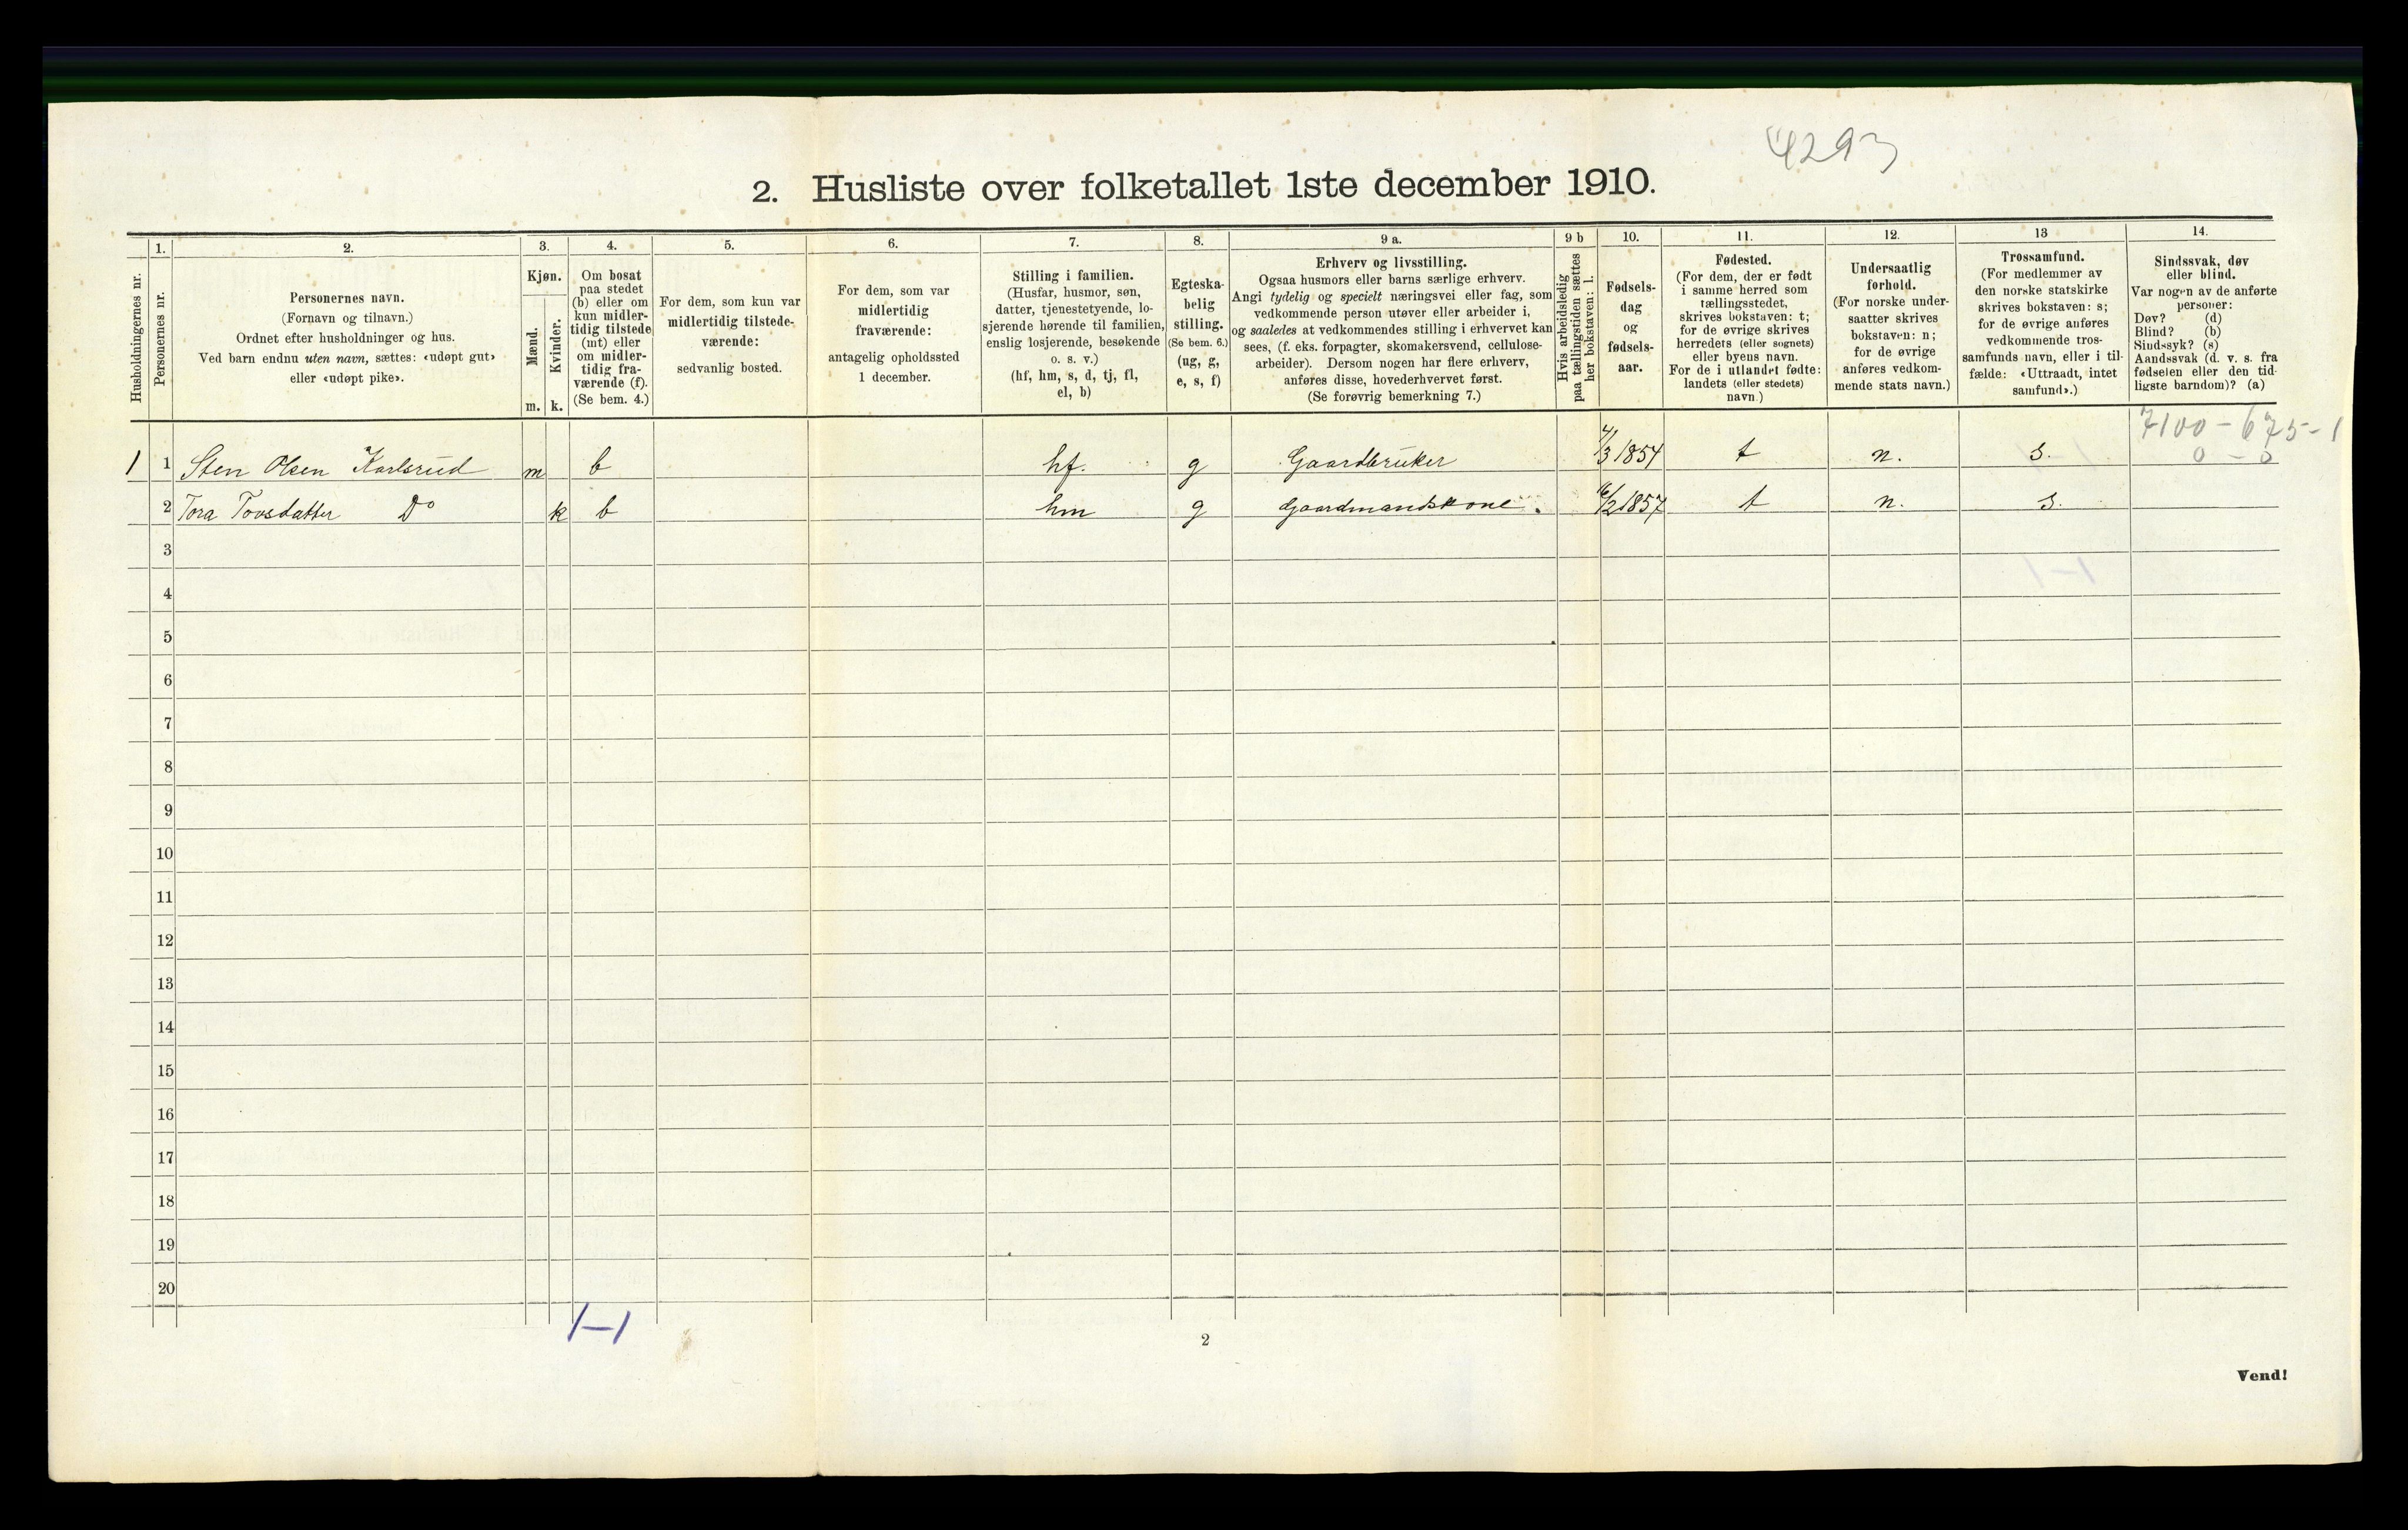 4293
2. Husliste over folketallet 1ste december 1910.
Husholdningernes nr.
1.
Personernes nr.
2.
Personernes navn.
(Fornavn og tilnavn.)
Ordnet efter husholdninger og hus.
Ved barn endnu uten navn, sættes: «udøpt gut»
eller «udøpt pike».
3.
Kjøn.
Mænd.
m.
Kvinder.
k.
4.
Om bosat
paa stedet
(b) eller om
kun midler-
tidig tilstede
(mt) eller
om midler-
tidig fra-
værende (f).
(Se bem. 4.)
5.
For dem, som kun var
midlertidig tilstede-
værende:
sedvanlig bosted.
6.
For dem, som var
midlertidig
fraværende:
antagelig opholdssted
1 december.
7.
Stilling i familien.
(Husfar, husmor, søn,
datter, tjenestetyende, lo-
sjerende hørende til familien,
enslig losjerende, besøkende
o. s. v.)
(hf, hm, s, d, tj, fl,
el, b)
8.
Egteska-
belig
stilling.
(Se bem. 6.)
(ug, g,
e, s, f)
9 a.
Erhverv og livsstilling.
Ogsaa husmors eller barns særlige erhverv.
Angi tydelig og specielt næringsvei eller fag, som
vedkommende person utøver eller arbeider i,
og saaledes at vedkommendes stilling i erhvervet kan
sees, (f. eks. forpagter, skomakersvend, cellulose-
arbeider). Dersom nogen har flere erhverv,
anføres disse, hovederhvervet først.
(Se forøvrig bemerkning 7.)
9 b
Hvis arbeidsledig
paa tællingstiden sættes
her bokstaven: l.
10.
Fødsels-
dag
og
fødsels-
aar.
11.
Fødested.
(For dem, der er født
i samme herred som
tællingsstedet,
skrives bokstaven: t;
for de øvrige skrives
herredets (eller sognets)
eller byens navn.
For de i utlandet fødte:
landets (eller stedets)
navn.)
12.
Undersaatlig
forhold.
(For norske under-
saatter skrives
bokstaven: n;
for de øvrige
anføres vedkom-
mende stats navn.)
13
Trossamfund.
(For medlemmer av
den norske statskirke
skrives bokstaven: s;
for de øvrige anføres
vedkommende tros-
samfunds navn, eller i til-
fælde: «Uttraadt, intet
samfund».)
14.
Sindssvak, døv
eller blind.
Var nogen av de anførte
personer:
Døv? (d)
Blind? (b)
Sindssyk? (s)
Aandssvak (d. v. s. fra
fødselen eller den tid-
ligste barndom)? (a)
7100 - 675 - 1
0 - 0
1 1 Sten Olsen Karlsrud m b hf. g Gaardbruker 4/3 1854 t n. s.
2 Tora Tovsdatter Do k b hm g Gaardmandskone. 16/2 1857 t n. s.
3
4
5
6
7
8
9
10
11
12
13
14
15
16
17
18
19
20
1-1
2
Vend!